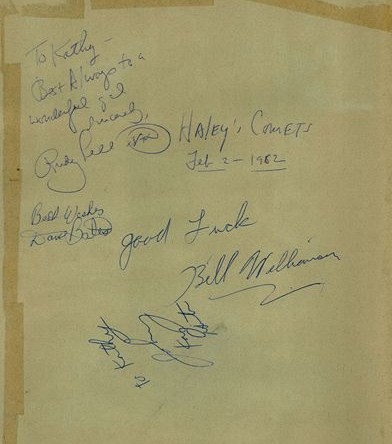 To Kathy -
Best Always to a
wonderful gal
Sincerely,
Rudy Pell
HALEY'S COMETS
Feb 2 - 1982
Best Wishes
good Luck
Bill Williamson
To Kathy